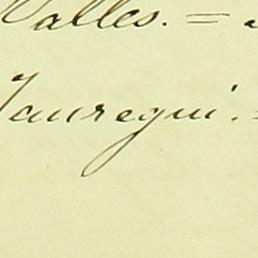 Valles. =
Jauregui. =